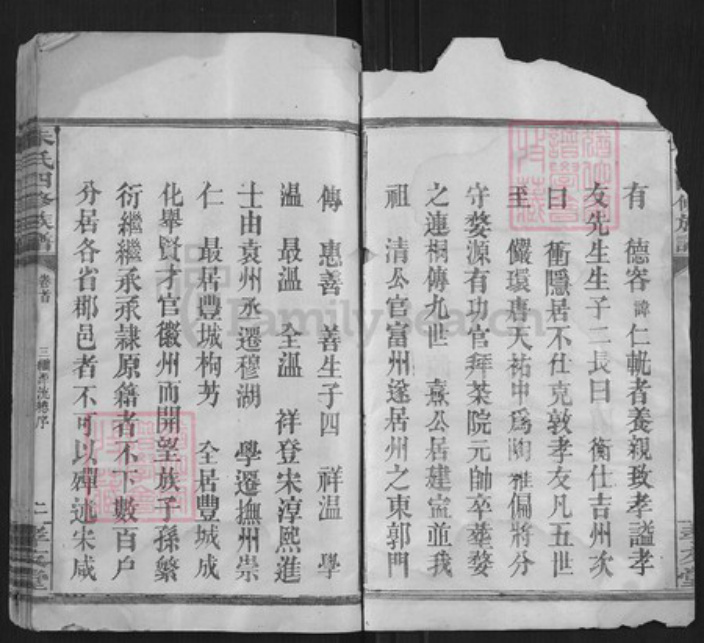 有 德容諱仁軌者養親致孝謚孝
友先生生子二長曰 衡仕吉州次
曰 衝隱居不仕克敦孝友凡五世
至 儼環唐天祐中爲陶雅偏將分
守婺源有功官拜茶院元帥卒葬婺
之連桐傳九世 熹公居建寍並我
祖 清公官富州遂居州之東郭門
傳 惠善 善生子四 祥温 學
温 最溫 全溫 祥登宋淳熙進
士由袁州丞遷穆湖 學遷撫州崇
仁 最居豐城栒芳 全居豐城成
化舉賢才官徽州而開望族子孫繁
衍繼繼承承隷原籍者不下數百户
分居各省郡邑者不可以殫述宋咸
朱氏四修族譜
卷首
二
孝友堂
FamilySearch